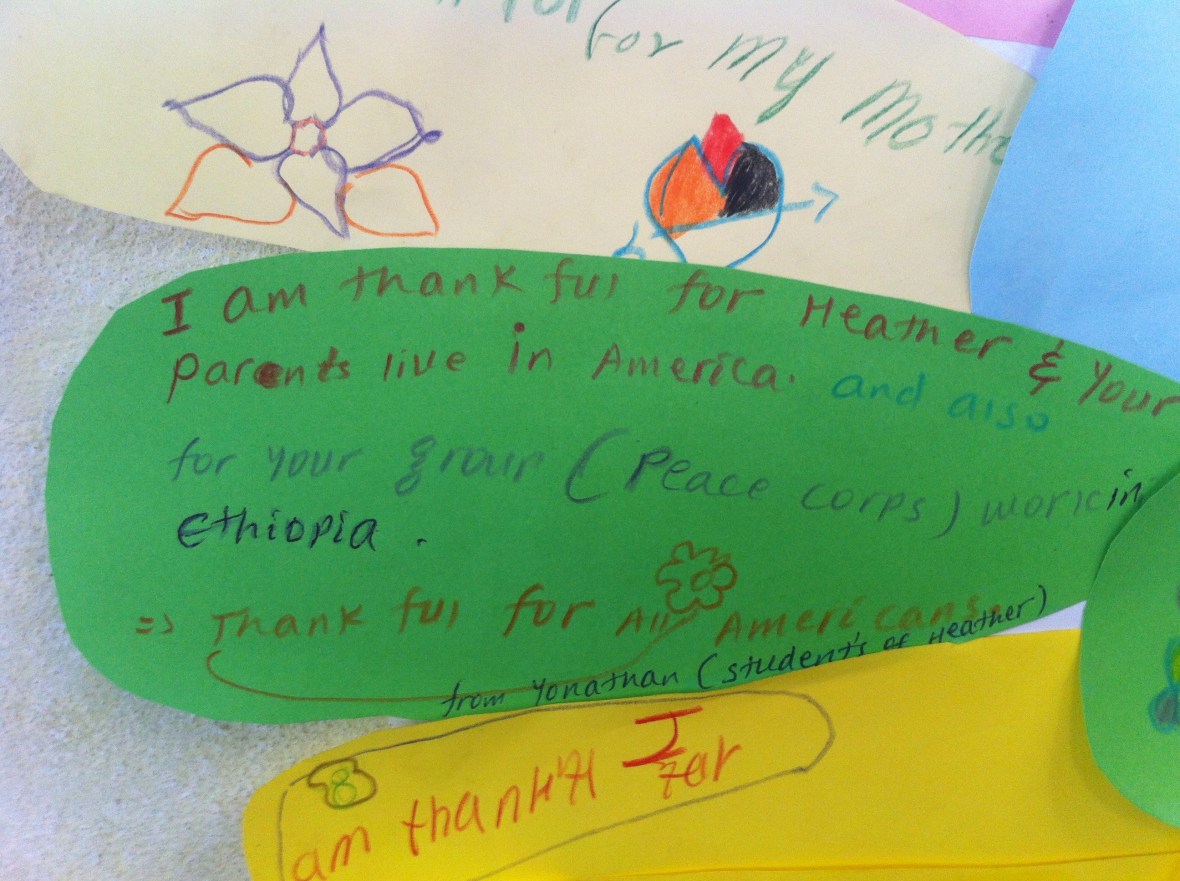 for my Moth
I am thank ful for Heather & Your
parents live in America. and also
for your group (Peace corps) work in
Ethiopia.
=> Thank ful for All Americans.
from Yonathan (student's of Heather)
I
am thank far
8